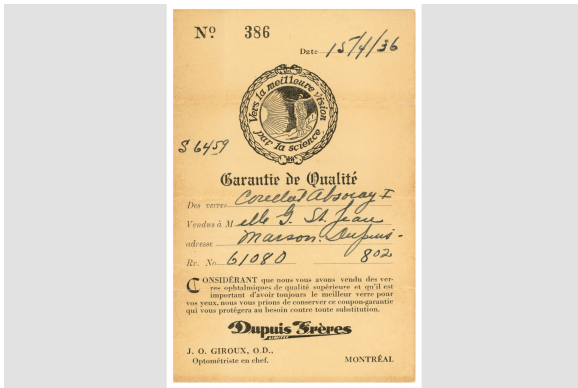 Nº 386
Date 15/4/36
Vers la meilleure vision
par la science
$ 6459
Garantie de Qualité
Des verres Absoray I
Vendus à Melle G. St. Jean
adresse Maison Dupuis -
Rx. No. 61080 802
CONSIDÉRANT que nous vous avons vendu des ver-
res ophtalmiques de qualité supérieure et qu'il est
important d'avoir toujours le meilleur verre pour
vos yeux, nous vous prions de conserver ce coupon-garantie
qui vous protégera au besoin contre toute substitution.
Dupuis Frères
LIMITÉE
J. O. GIROUX, O.D.,
Optométriste en chef. MONTRÉAL